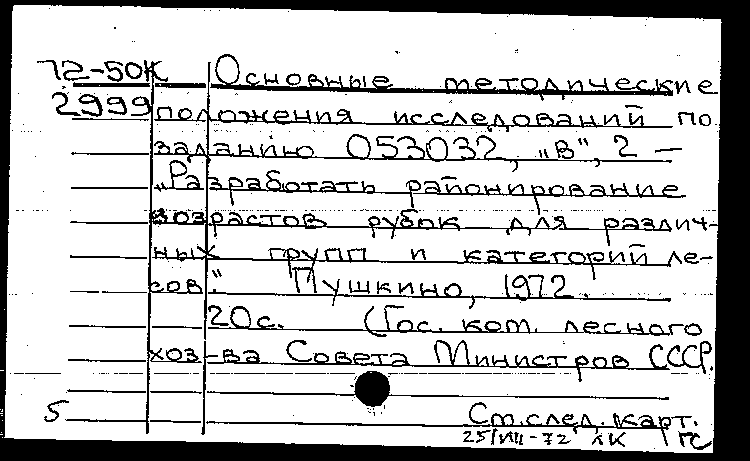 72-50К Основные методические
2999 положения исследований по
заданию 053032, „В", 2 —
„Разработать районирование
возрастов рубок для различ-
ных групп и категорий ле-
сов." Пушкино, 1972.
20с. (Гос. ком. лесного
хоз-ва Совета Министров СССР.
5 См. след. карт.
25/VIII-72 ЛК ПС